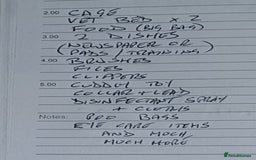 2.00 CAGE
VET BED X 2
FOOD (BIG BAG)
3.00 2 DISHES
(NEWSPAPER OR)
PADS / TRAINING)
4.00 BRUSHES
FILES
CLIPPERS
5.00 CUDDLY TOY
COLLAR + LEAD
DISINFECTANT SPRAY
+ CLOTHS
Notes: POO BAGS
EYE CARE ITEMS
AND MUCH,
MUCH MORE